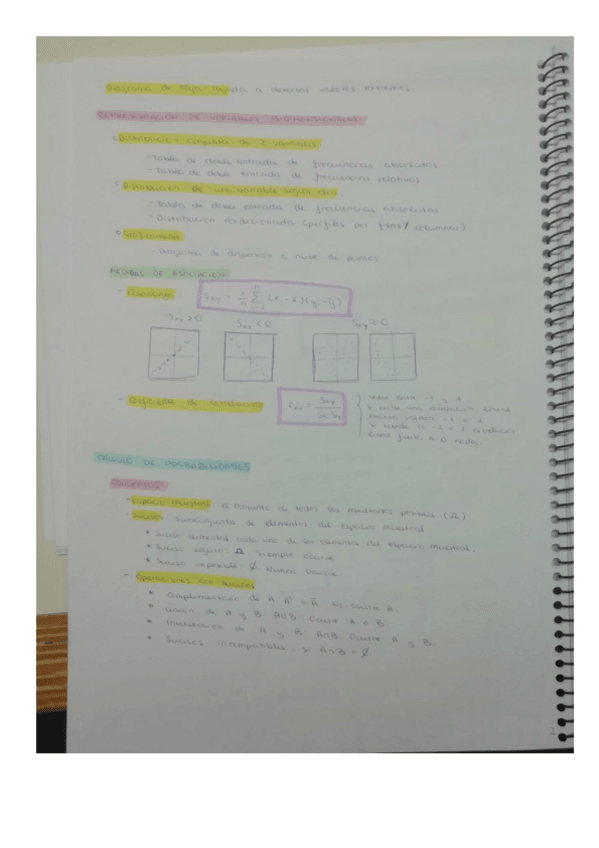 Diagrama de caja: ayuda a detectar valores extremos
REPRESENTACIÓN DE VARIABLES BIDIMENSIONALES
Distribución conjunta de 2 variables
- Tabla de doble entrada de frecuencias absolutas
- Tabla de doble entrada de frecuencias relativas
Distribución de una variable según otra:
- Tabla de doble entrada de frecuencias absolutas
- Distribución condicionada (perfiles por filas/columnas)
- Diagrama de dispersión o nube de puntos
MEDIDAS DE ASOCIACIÓN
- Covarianza Sxy = 1/n Σ (xi - x̄)(yi - ȳ)
Sxy > 0 Sxy < 0 Sxy = 0
- Coeficiente de correlación rxy = Sxy / Sx Sy
CÁLCULO DE PROBABILIDADES
CONCEPTOS:
- Espacio muestral: el conjunto de todos los resultados posibles (Ω)
- Suceso: subconjunto de elementos del espacio muestral
• Suceso elemental: cada uno de los elementos del espacio muestral.
• Suceso seguro: Ω Siempre ocurre
• Suceso imposible: ∅ Nunca ocurre
- Operaciones con sucesos
• Complementario de A: Aᶜ = Ā No ocurre A
• Unión de A y B: A∪B. Ocurre A o B.
• Intersección de A y B: A∩B Ocurre A y B.
• Sucesos incompatibles: si A∩B = ∅